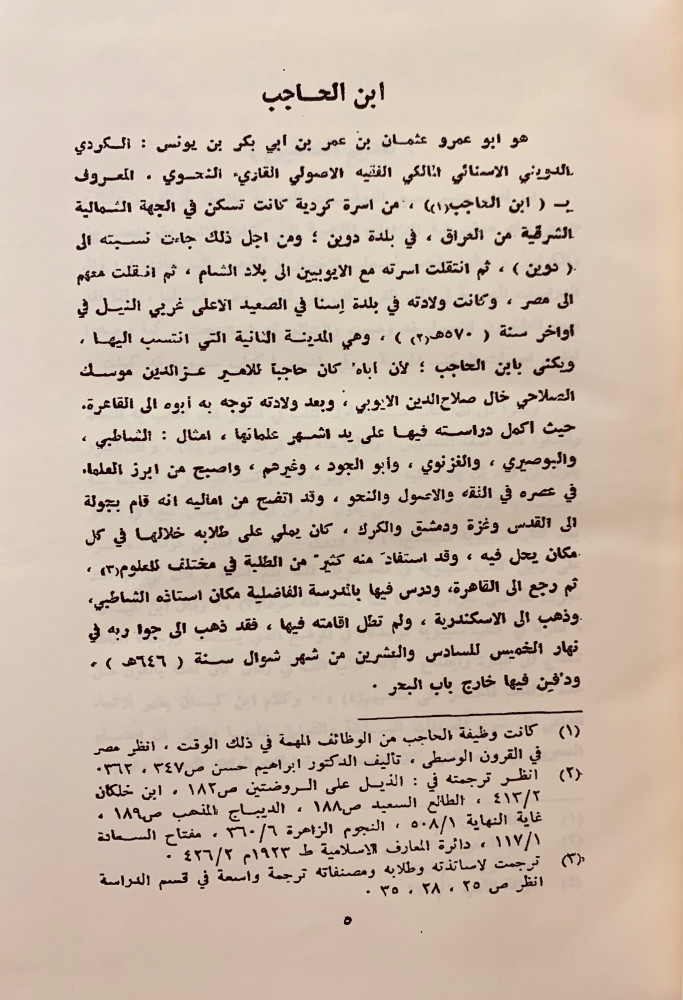 ابن الحاجب
هو ابو عمرو عثمان بن عمر بن ابي بكر بن يونس : الكردي
الدويني الاسنائي المالكي الفقيه الاصولي القاريء النحوي ، المعروف
بـ ( ابن الحاجب(١) ) ، من اسرة كردية كانت تسكن في الجهة الشمالية
الشرقية من العراق ، في بلدة دوين ؛ ومن اجل ذلك جاءت نسبته الى
( دوين ) ، ثم انتقلت اسرته مع الايوبيين الى بلاد الشام ، ثم انقلت معهم
الى مصر ، وكانت ولادته في بلدة إسنا في الصعيد الاعلى غربي النيل في
اواخر سنة ( ٥٧٠هـ(٢) ) ، وهي المدينة الثانية التي انتسب اليها ،
ويكنى بابن الحاجب ؛ لأن أباه كان حاجباً للامير عزالدين موسك
الصلاحي خال صلاح الدين الايوبي ، وبعد ولادته توجه به أبوه الى القاهرة،
حيث اكمل دراسته فيها على يد اشهر علمائها ، امثال : الشاطبي ،
والبوصيري ، والغزنوي ، وأبو الجود ، وغيرهم ، واصبح من ابرز العلماء
في عصره في الفقه والاصول والنحو ، وقد اتضح من اماليه انه قام بجولة
الى القدس وغزة ودمشق والكرك ، كان يملي على طلابه خلالها في كل
مكان يحل فيه ، وقد استفادَ منه كثيرٌ من الطلبة في مختلف العلوم(٣) ،
ثم رجع الى القاهرة، ودرس فيها بالمدرسة الفاضلية مكان استاذه الشاطبي،
وذهب الى الاسكندرية ، ولم تطل اقامته فيها ، فقد ذهب الى جوا ربه في
نهار الخميس للسادس والعشرين من شهر شوال سنة ( ٦٤٦هـ ) ،
ودُفِن فيها خارج باب البحر .
(١) كانت وظيفة الحاجب من الوظائف المهمة في ذلك الوقت ، انظر مصر
في القرون الوسطى ، تأليف الدكتور ابراهيم حسن ص٣٤٧ ، ٣٦٢.
(٢) انظر ترجمته في : الذيل على الروضتين ص١٨٢ ، ابن خلكان
٤١٣/٢ ، الطالع السعيد ص١٨٨ ، الديباج المذهب ص١٨٩ ،
غاية النهاية ٥٠٨/١ ، النجوم الزاهرة ٣٦٠/٦ ، مفتاح السعادة
١١٧/١ ، دائرة المعارف الاسلامية ط ١٩٢٣م ٤٢٦/٢ .
(٣) ترجمت لاساتذته وطلابه ومصنفاته ترجمة واسعة في قسم الدراسة
انظر ص ٢٥ ، ٢٨ ، ٣٥ .
٥